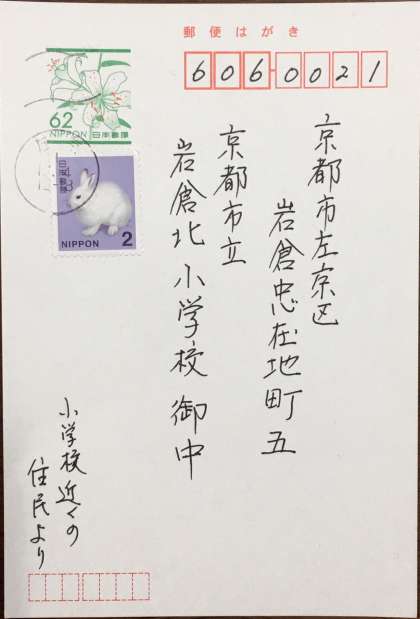 郵便はがき
606-0021
京都市左京区
岩倉忠在地町五
京都市立
岩倉北小学校 御中
62
NIPPON 日本郵便
日本郵便
NIPPON 2
小学校近くの
住民より